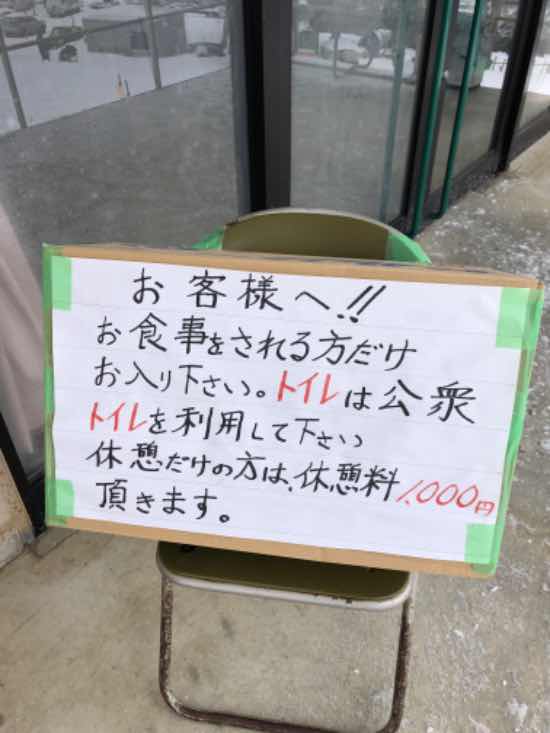 お客様へ!!
お食事をされる方だけ
お入り下さい。トイレは公衆
トイレを利用して下さい
休憩だけの方は、休憩料1,000円
頂きます。